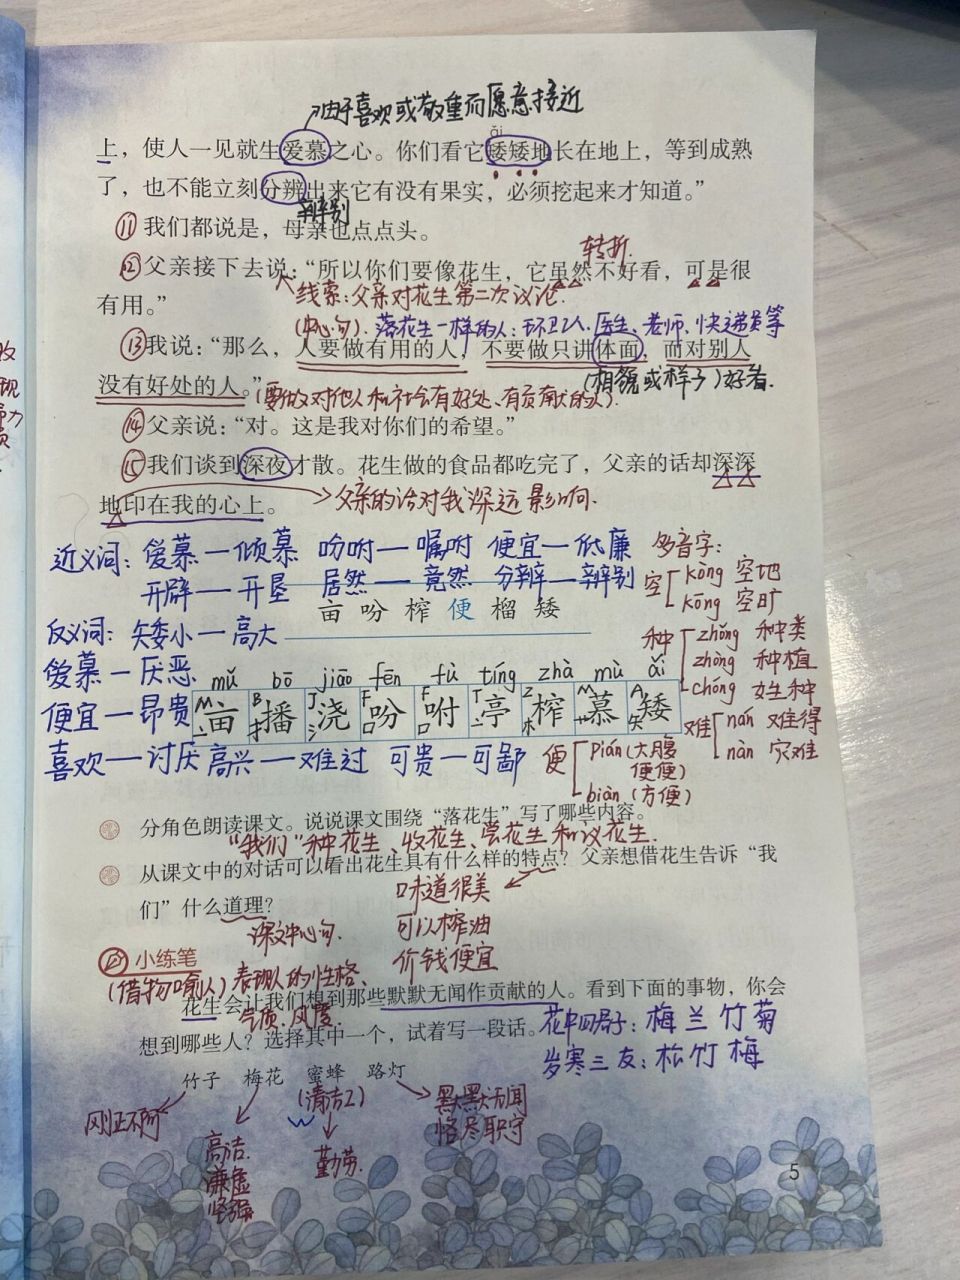 由于喜欢或敬重而愿意接近
ǎi
上，使人一见就生爱慕之心。你们看它矮矮地长在地上，等到成熟
了，也不能立刻分辨出来它有没有果实，必须挖起来才知道。”
辨别
⑪我们都说是，母亲也点点头。
转折.
⑫父亲接下去说：“所以你们要像花生，它虽然不好看，可是很
有用。”
线索：父亲对花生第二次议论.
(中心句). 落花生一样的人：环卫工人、医生、老师、快递员等
⑬我说：“那么，人要做有用的人，不要做只讲体面，而对别人
没有好处的人。”
(相貌或样子)好看.
(要做对他人和社会有好处、有贡献的人).
⑭父亲说：“对。这是我对你们的希望。”
⑮我们谈到深夜才散。花生做的食品都吃完了，父亲的话却深深
地印在我的心上。
父亲的话对我深远影响.
近义词：爱慕—倾慕 吩咐—嘱咐 便宜—低廉
开辟—开垦 居然—竟然 分辨—辨别
多音字：
空 kòng 空地
kōng 空旷
亩 吩 榨 便 榴 矮
反义词：矮小—高大
种 zhǒng 种类
zhòng 种植
chóng 姓种
爱慕—厌恶
mǔ bō jiāo fēn fù tíng zhà mù ǎi
便宜—昂贵
M B J F F T Z M A
亩 播 浇 吩 咐 亭 榨 慕 矮
难 nán 难得
nàn 灾难
喜欢—讨厌 高兴—难过 可贵—可鄙
便 pián (大腹便便)
biàn (方便)
分角色朗读课文。说说课文围绕“落花生”写了哪些内容。
“我们”种花生、收花生、尝花生和议花生.
从课文中的对话可以看出花生具有什么样的特点？父亲想借花生告诉“我
们”什么道理？
味道很美
可以榨油
价钱便宜
课文中心句.
小练笔
(借物喻人) 表现人的性格、
气质、风度.
花生会让我们想到那些默默无闻作贡献的人。看到下面的事物，你会
想到哪些人？选择其中一个，试着写一段话。
花中四君子：梅兰竹菊
岁寒三友：松竹梅
竹子 梅花 蜜蜂 路灯
(清洁工)
刚正不阿
高洁.
谦虚
坚强
勤劳.
默默无闻
恪尽职守
5